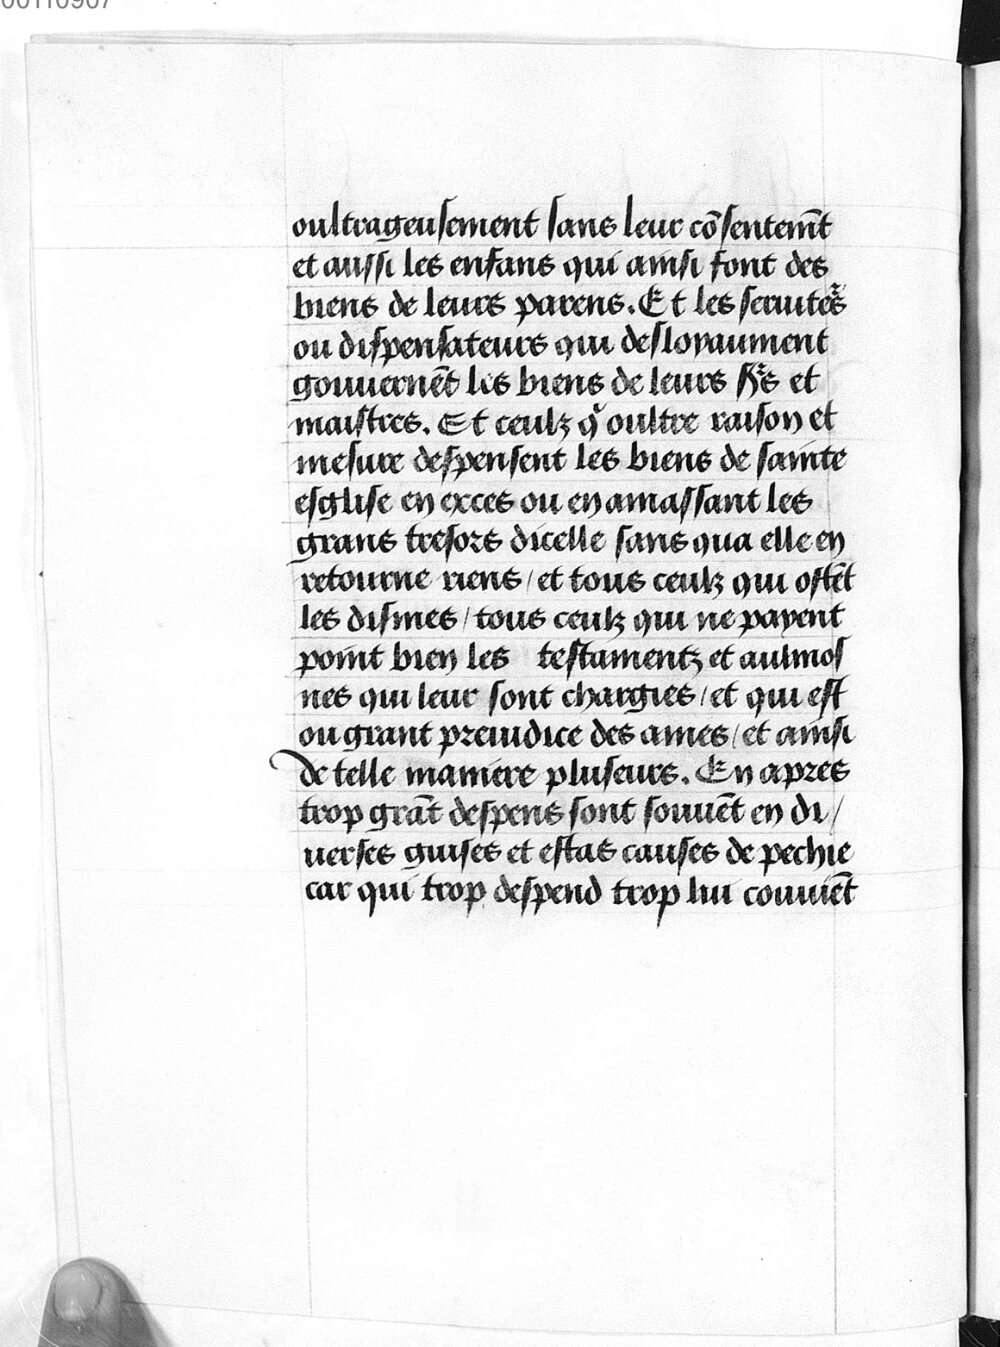 00110907
oultrageusement sans leur cōsentem̄t
et aussi les enfans qui ainsi font des
biens de leurs parens. Et les seruite᷑s
ou dispensateurs qui desloyaument
gouuernēt les biens de leurs s᷑s et
maistres. Et ceulz qͥ oultre raison et
mesure despensent les biens de sainte
esglise en exces ou en amassant les
grans tresors dicelle sans qua elle en
retourne riens / et tous ceulz qui ostēt
les dismes / tous ceulz qui ne payent
point bien les testamentz et aulmos
nes qui leur sont chargies / et qui est
ou grant preiudice des ames / et ainsi
de telle maniere pluseurs. En apres
trop grāt despens sont souuēt en di /
uerses guises et estas causes de pechie
car qui trop despend trop lui couuiēt